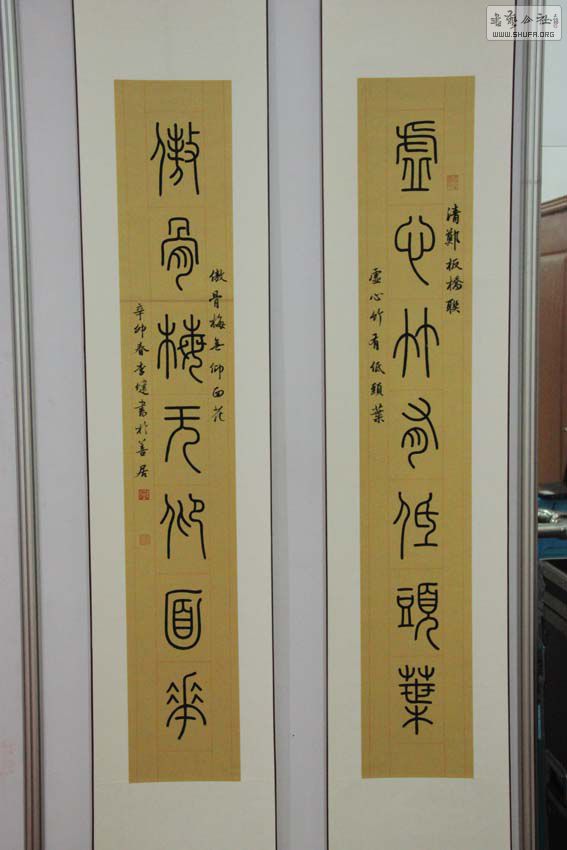 虚心竹有低頭葉
清鄭板橋聯
虚心竹有低頭葉
傲骨梅无仰面花
傲骨梅無仰面花
辛卯春李健書於善居
WWW.SHUFA.ORG